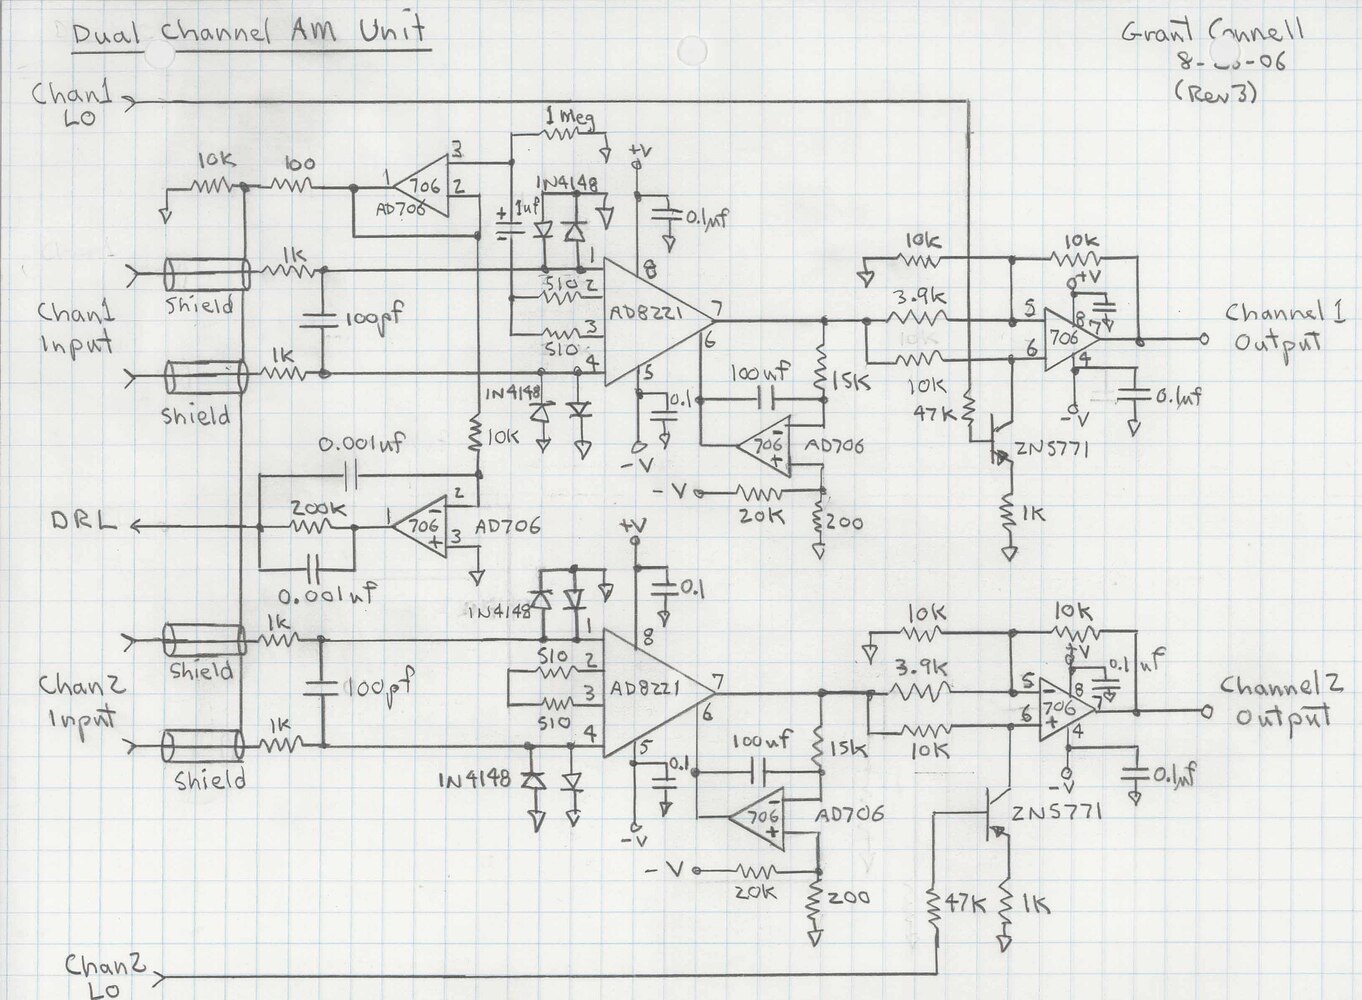 Dual Channel AM Unit
Grant Connell
8- -06
(Rev3)
Chan1
LO
1 Meg
+V
10K
100
1
706
AD706
3
2
1N4148
1uf
+
-
0.1uf
1K
1
8
10K
10K
+V
Shield
510
2
AD8221
7
3.9K
5
8
7
Channel 1
Output
Chan1
Input
100pf
510
3
6
706
1K
4
5
10K
6
4
Shield
1N4148
0.1
100uf
15K
47K
-V
0.1uf
10K
706
-
+
AD706
2N5771
0.001uf
-V
-V
20K
200
1K
DRL
200K
1
706
-
+
2
3
AD706
+V
0.001uf
1N4148
0.1
1K
1
8
10K
10K
+V
0.1uf
Shield
510
2
AD8221
7
3.9K
5
-
8
7
Channel 2
Output
Chan2
Input
100pf
3
510
6
706
1K
4
5
10K
6
+
4
Shield
1N4148
0.1
100uf
15K
-V
0.1uf
706
-
+
AD706
2N5771
-V
-V
20K
200
47K
1K
Chan2
LO